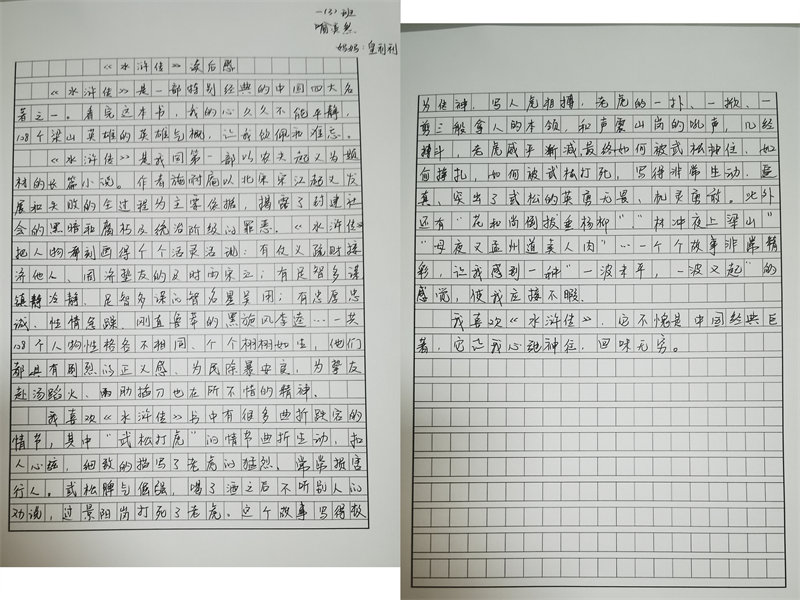 一(3)班
妈妈:皇利利
《水浒传》读后感
《水浒传》是一部特别经典的中国四大名
著之一。看完这本书,我的心久久不能平静,
108个梁山英雄的英雄气概,让我钦佩和难忘。
《水浒传》是我国第一部以农夫起义为题
材的长篇小说。作者施耐庵以北宋宋江起义发
展和失败的全过程为主要依据,揭露了封建社
会的黑暗和腐朽及统治阶级的罪恶。《水浒传》
把人物雕刻画得个个活灵活现:有仗义疏财接
济他人、周济挚友的及时雨宋江;有足智多谋
镇静冷静、足智多谋的智多星吴用;有忠厚忠
诚、性情急躁、刚直鲁莽的黑旋风李逵……一共
108个人物性格各不相同、个个栩栩如生,他们
都具有剧烈的正义感、为民除暴安良,为挚友
赴汤蹈火、两肋插刀也在所不惜的精神。
我喜欢《水浒传》书中有很多曲折跌宕的
情节,其中“武松打虎”的情节曲折生动,扣
人心弦,细致的描写了老虎的猛烈、常常损害
行人。武松脾气倔强,喝了酒之后不听别人的
劝说,过景阳岗打死了老虎。这个故事写得极
为传神,写人虎相搏,老虎的一扑、一掀、一
剪三般拿人的本领,和声震山岗的吼声,几经
搏斗,老虎威平渐减,最终如何被武松神住,如
何挣扎,如何被武松打死,写得非常生动、逼
真、突出了武松的英勇无畏、机灵勇敢。此外
还有“花和尚倒拔垂杨柳”.“林冲夜上梁山”
“母夜叉孟州道卖人肉”…一个个故事非常精
彩,让我感到一种“一波未平,一波又起”的
感觉,使我应接不暇.
我喜欢《水浒传》,它不愧是中国经典巨
著,它让我心驰神往,回味无穷。